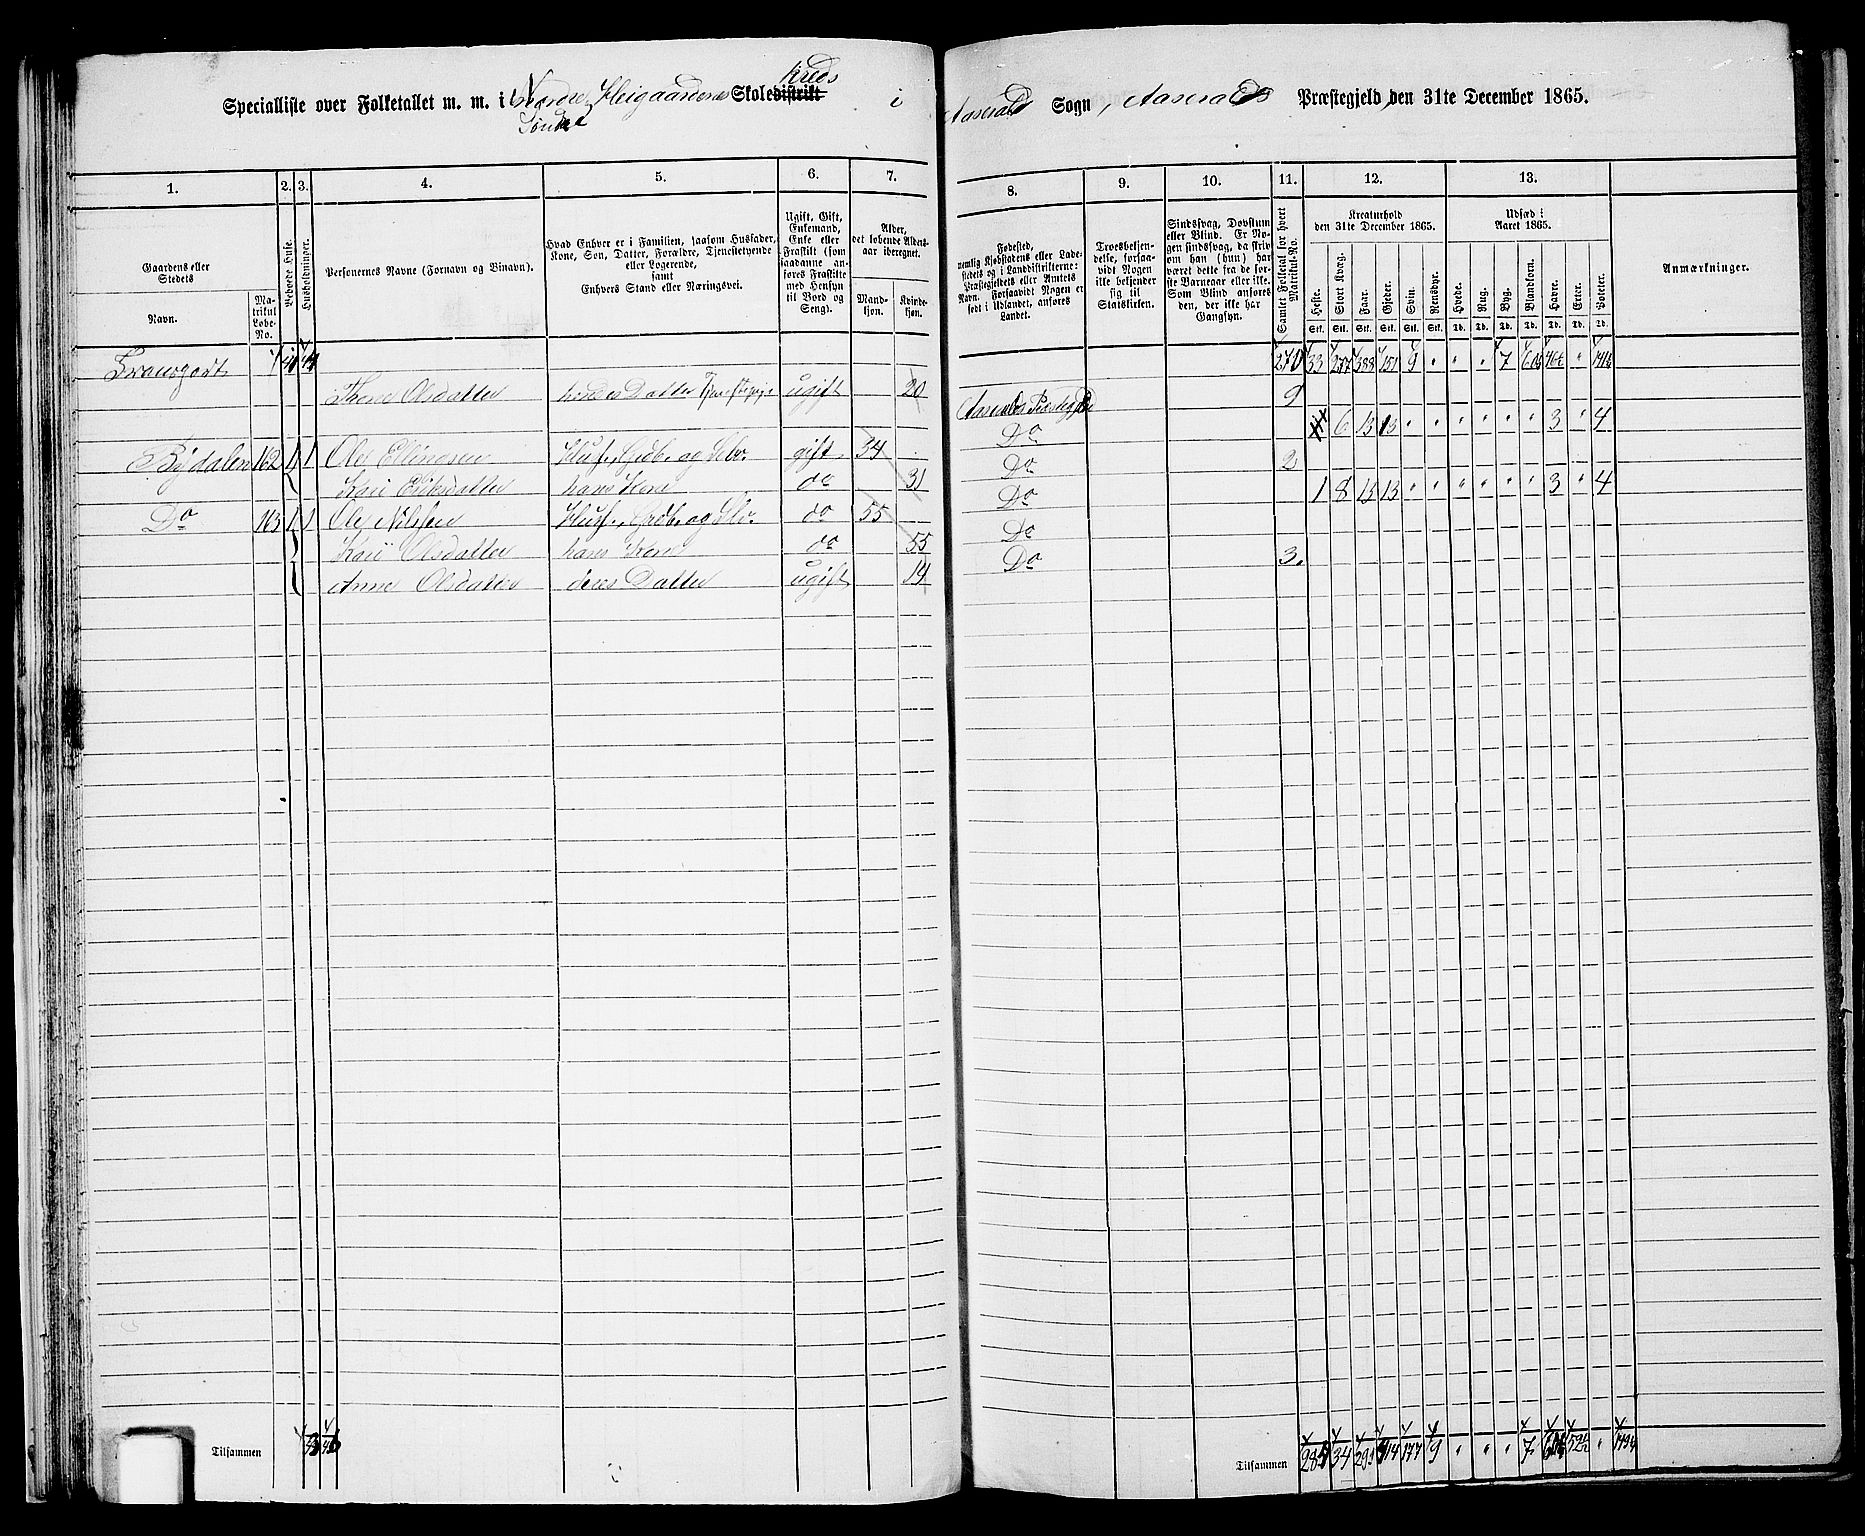 Kreds
Specialliste over Folketallet m. m. i Nordre Heigaardenes Skoledistrikt i Aaseralds Sogn, Aaseralds Præstegjeld den 31te December 1865.
Søndre
1. 2. 3. 4. 5. 6. 7. 8. 9. 10. 11. 12. 13.
Gaardens eller Stedets
Navn.
Matrikul Løbe-No.
Beboede Huse.
Husholdninger.
Personernes Navne (Fornavn og Tilnavn).
Hvad Enhver er i Familien, saasom Husfader, Kone, Søn, Datter, Forældre, Tjenestetyende eller Logerende, samt Enhvers Stand eller Næringsvei.
Ugift, Gift, Enkemand, Enke eller Fraskilt (som saadanne anføres Fraskilte med Hensyn til Bord og Seng).
Alder, det løbende Aldersaar iberegnet.
Mandkjøn. Kvindekjøn.
Fødested, nemlig Kjøbstadens eller Ladestedets og i Landdistrikterne: Præstegjeldets eller Amtets Navn. Forsaavidt Nogen er født i Udlandet, anføres Landet.
Troesbekjendelse, forsaavidt Nogen ikke bekjender sig til Statskirken.
Sindssvag, Døvstum eller Blind. Er Nogen sindssvag, da skriv om han (hun) har været dette fra de første Barneaar eller ikke. Som Blind anføres den, der ikke har Gangsyn.
Samlet Folketal for hvert Matrikul-No.
Kreaturhold den 31te December 1865.
Heste. Stort Kvæg. Faar. Gjeder. Svin. Rensdyr.
Udsæd i Aaret 1865.
Hvede. Rug. Byg. Blandkorn. Havre. Erter. Poteter.
Stk. Stk. Stk. Stk. Stk. Stk. Td. Td. Td. Td. Td. Td. Td.
Anmærkninger.
Transport 270 33 277 388 151 9 " " 7
Thone Olsdatter hendes Datter ugift 20 Aaseralds Præstegjeld 9
6 13 13 " " " " " " 3 " 4
Bydalen 162 1 1 Ole Ellingsen Husf., Grdb. og Selv. gift 34 Do 2
Kari Eriksdatter hans Kone do 31 Do
1 8 13 13 " " " " " " 3 " 4
Do 163 1 1 Ole Nilsen Husf., Grdb. og Selv. do 55 Do
Kari Olsdatter hans Kone do 55 Do
Anne Olsdatter deres Datter ugift 14 Do 3.
Tilsammen
Tilsammen 34 291 414 177 9 " " " 7 "